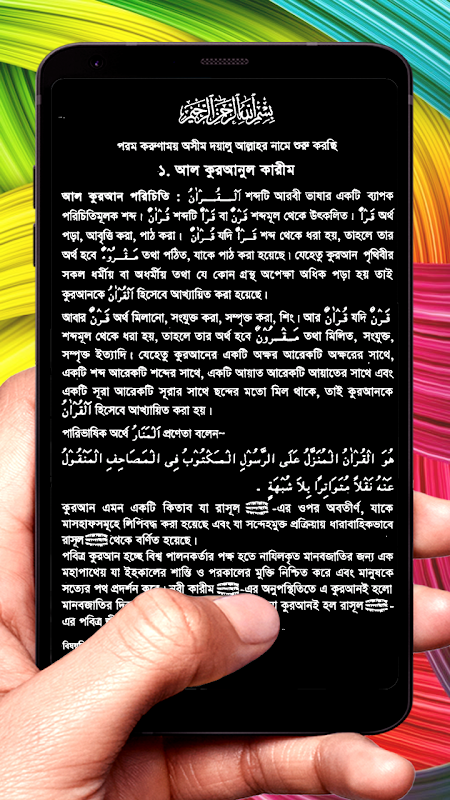 بسم الله الرحمن الرحيم
পরম করুণাময় অসীম দয়ালু আল্লাহর নামে শুরু করছি
১. আল কুরআনুল কারীম
আল কুরআন পরিচিতি : اَلْـقُـرْاٰنُ শব্দটি আরবী ভাষার একটি ব্যাপক
পরিচিতিমূলক শব্দ। قُرْاٰنٌ শব্দটি قَرَأَ বা قَرْنٌ শব্দমূল থেকে উৎকলিত। قَرَأَ অর্থ
পড়া, আবৃত্তি করা, পাঠ করা। قُرْاٰنٌ যদি قَـرَأَ শব্দ থেকে ধরা হয়, তাহলে তার
অর্থ হবে مَـقْـرُوْءٌ তথা পঠিত, যাকে পাঠ করা হয়েছে। যেহেতু কুরআন পৃথিবীর
সকল ধর্মীয় বা অধর্মীয় তথা যে কোন গ্রন্থ অপেক্ষা অধিক পড়া হয় তাই
কুরআনকে اَلْقُرْاٰنُ হিসেবে আখ্যায়িত করা হয়েছে।
আবার قَرْنٌ অর্থ মিলানো, সংযুক্ত করা, সম্পৃক্ত করা, শিং। আর قُرْاٰنٌ যদি قَرْنٌ
শব্দমূল থেকে ধরা হয়, তাহলে তার অর্থ হবে مَـقْـرُوْنٌ তথা মিলিত, সংযুক্ত,
সম্পৃক্ত ইত্যাদি। যেহেতু কুরআনের একটি অক্ষর আরেকটি অক্ষরের সাথে,
একটি শব্দ আরেকটি শব্দের সাথে, একটি আয়াত আরেকটি আয়াতের সাথে এবং
একটি সূরা আরেকটি সূরার সাথে ছন্দের মতো মিল থাকে, তাই কুরআনকে
اَلْقُرْاٰنُ হিসেবে আখ্যায়িত করা হয়।
পারিভাষিক অর্থে اَلْمَنَارُ প্রণেতা বলেন~
هُـوَ الْـقُـرْاٰنُ الْـمُنَـزَّلُ عَلَى الرَّسُوْلِ الْـمَـكْـتُـوْبُ فِى الْـمَـصَاحِفِ الْـمَـنْـقُـوْلُ
عَنْهُ نَقْلاً مُتَوَاتِرًا بِلاَ شُبْهَةٍ ـ
কুরআন এমন একটি কিতাব যা রাসূল -এর ওপর অবতীর্ণ, যাকে
মাসহাফসমূহে লিপিবদ্ধ করা হয়েছে এবং যা সন্দেহমুক্ত প্রক্রিয়ায় ধারাবাহিকভাবে
রাসূল থেকে বর্ণিত হয়েছে।
পবিত্র কুরআন হচ্ছে বিশ্ব পালনকর্তার পক্ষ হতে নাযিলকৃত মানবজাতির জন্য এক
মহাপাথেয় যা ইহকালের শান্তি ও পরকালের মুক্তি নিশ্চিত করে এবং মানুষকে
সত্যের পথ প্রদর্শন করে। নবী কারীম -এর অনুপস্থিতিতে এ কুরআনই হলো
মানবজাতির কুরআনই হল রাসূল -
এর পবিত্র